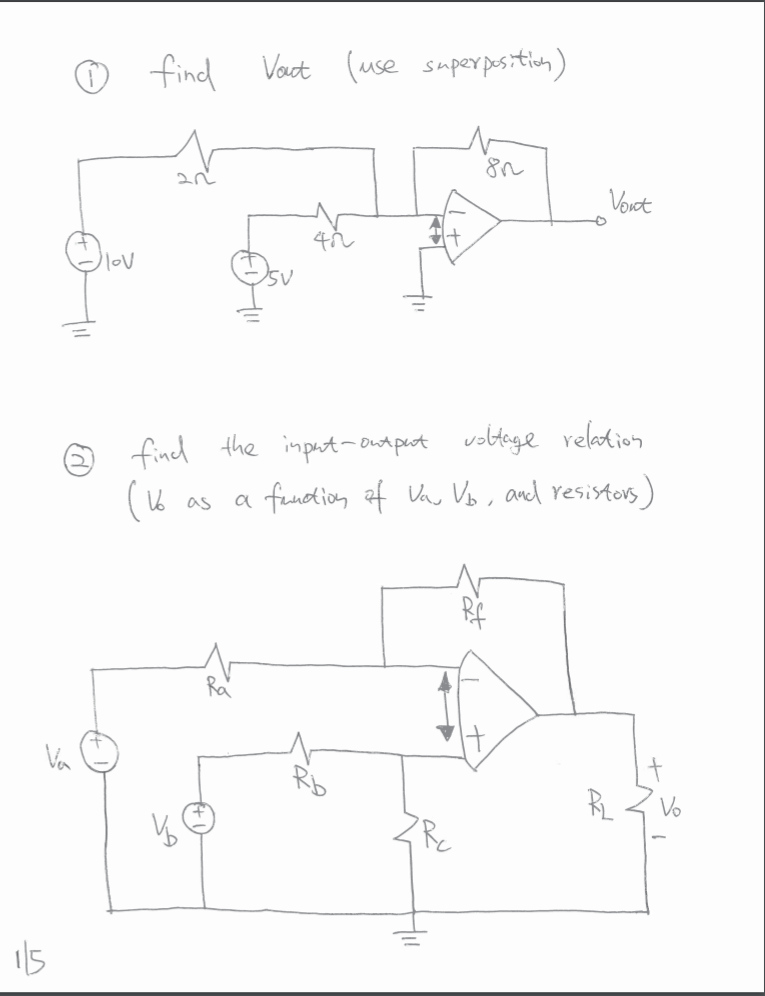 ① find Vout (use superposition)
2Ω
8Ω
Vout
4Ω
-
+
+
-
10V
+
-
5V
② find the input-output voltage relation
(Vo as a function of Va, Vb, and resistors)
Rf
Ra
-
+
Va
+
-
Rb
Vb
+
-
Rc
RL
+
Vo
-
1/5